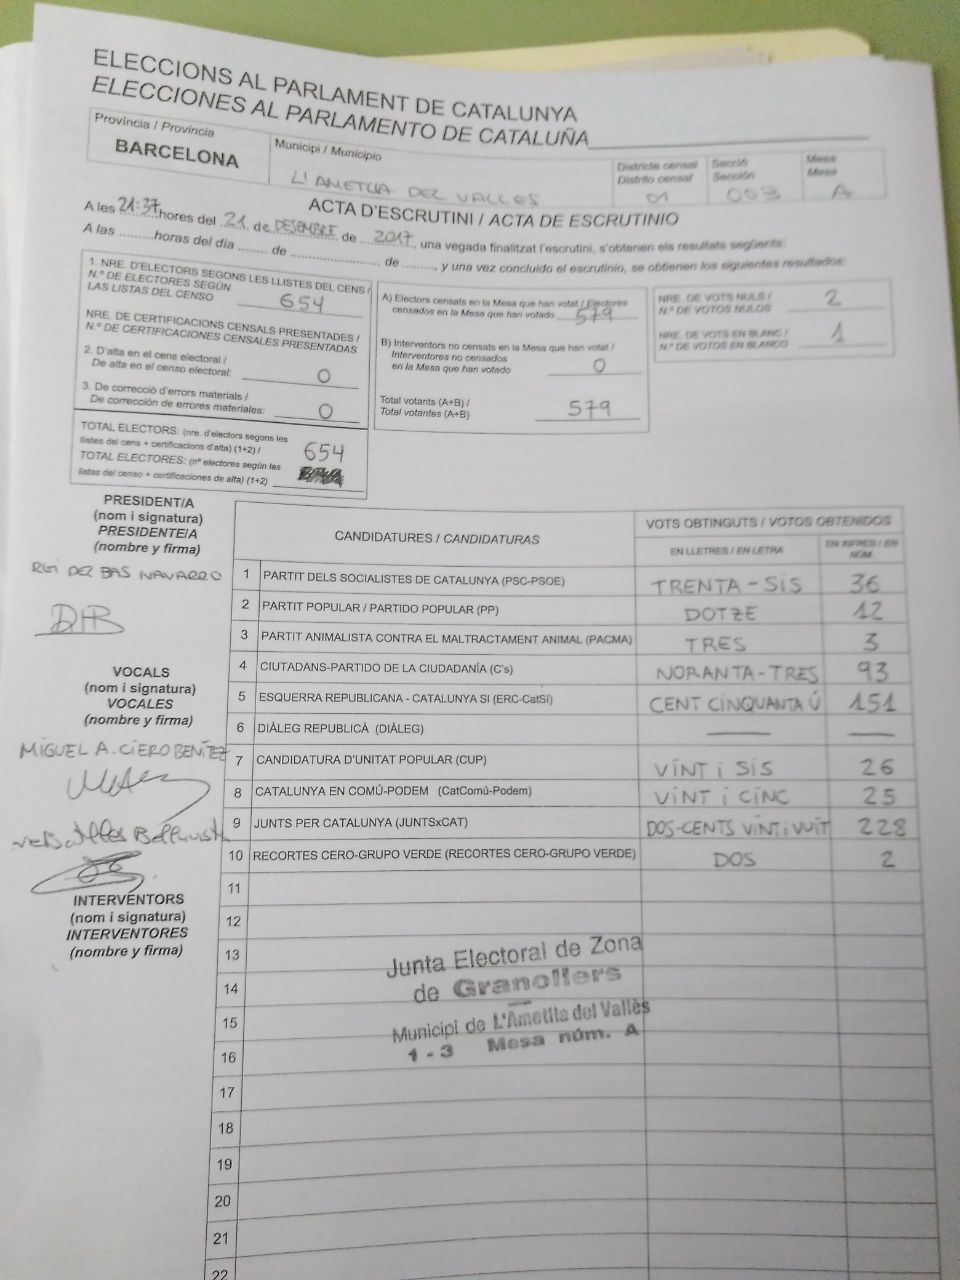 ELECCIONS AL PARLAMENT DE CATALUNYA
ELECCIONES AL PARLAMENTO DE CATALUÑA
Província / Provincia
BARCELONA
Municipi / Municipio
L'AMETLLA DEL VALLES
Districte censal
Distrito censal
01
Secció
Sección
003
Mesa
Mesa
A
ACTA D'ESCRUTINI / ACTA DE ESCRUTINIO
A les 21:37 hores del 21 de DESEMBRE de 2017, una vegada finalitzat l'escrutini, s'obtenen els resultats següents:
A las .........horas del día ........ de ........................ de ........., y una vez concluido el escrutinio, se obtienen los siguientes resultados:
1. NRE. D'ELECTORS SEGONS LES LLISTES DEL CENS /
N.º DE ELECTORES SEGÚN
LAS LISTAS DEL CENSO 654
NRE. DE CERTIFICACIONS CENSALS PRESENTADES /
N.º DE CERTIFICACIONES CENSALES PRESENTADAS
2. D'alta en el cens electoral /
De alta en el censo electoral: 0
3. De correcció d'errors materials /
De corrección de errores materiales: 0
TOTAL ELECTORS: (nre. d'electors segons les
llistes del cens + certificacions d'alta) (1+2) / 654
TOTAL ELECTORES: (nº electores según las
listas del censo + certificaciones de alta) (1+2)
A) Electors censats en la Mesa que han votat / Electores
censados en la Mesa que han votado 579
B) Interventors no censats en la Mesa que han votat /
Interventores no censados
en la Mesa que han votado 0
Total votants (A+B) /
Total votantes (A+B) 579
NRE. DE VOTS NULS /
N.º DE VOTOS NULOS 2
NRE. DE VOTS EN BLANC /
N.º DE VOTOS EN BLANCO 1
PRESIDENT/A
(nom i signatura)
PRESIDENTE/A
(nombre y firma)
BAS NAVARRO
VOCALS
(nom i signatura)
VOCALES
(nombre y firma)
MIGUEL A. CIERO BENÍTEZ
INTERVENTORS
(nom i signatura)
INTERVENTORES
(nombre y firma)
CANDIDATURES / CANDIDATURAS
VOTS OBTINGUTS / VOTOS OBTENIDOS
EN LLETRES / EN LETRA
EN XIFRES / EN NÚM.
1 PARTIT DELS SOCIALISTES DE CATALUNYA (PSC-PSOE) TRENTA-SIS 36
2 PARTIT POPULAR / PARTIDO POPULAR (PP) DOTZE 12
3 PARTIT ANIMALISTA CONTRA EL MALTRACTAMENT ANIMAL (PACMA) TRES 3
4 CIUTADANS-PARTIDO DE LA CIUDADANÍA (C's) NORANTA-TRES 93
5 ESQUERRA REPUBLICANA - CATALUNYA SI (ERC-CatSí) CENT CINQUANTA Ú 151
6 DIÀLEG REPUBLICÀ (DIÀLEG) — —
7 CANDIDATURA D'UNITAT POPULAR (CUP) VINT i SIS 26
8 CATALUNYA EN COMÚ-PODEM (CatComú-Podem) VINT i CINC 25
9 JUNTS PER CATALUNYA (JUNTSxCAT) DOS-CENTS VINT i VUIT 228
10 RECORTES CERO-GRUPO VERDE (RECORTES CERO-GRUPO VERDE) DOS 2
11
12
13
14
15
16
17
18
19
20
21
22
Junta Electoral de Zona
de Granollers
Municipi de L'Ametlla del Vallès
1 - 3 Mesa núm. A